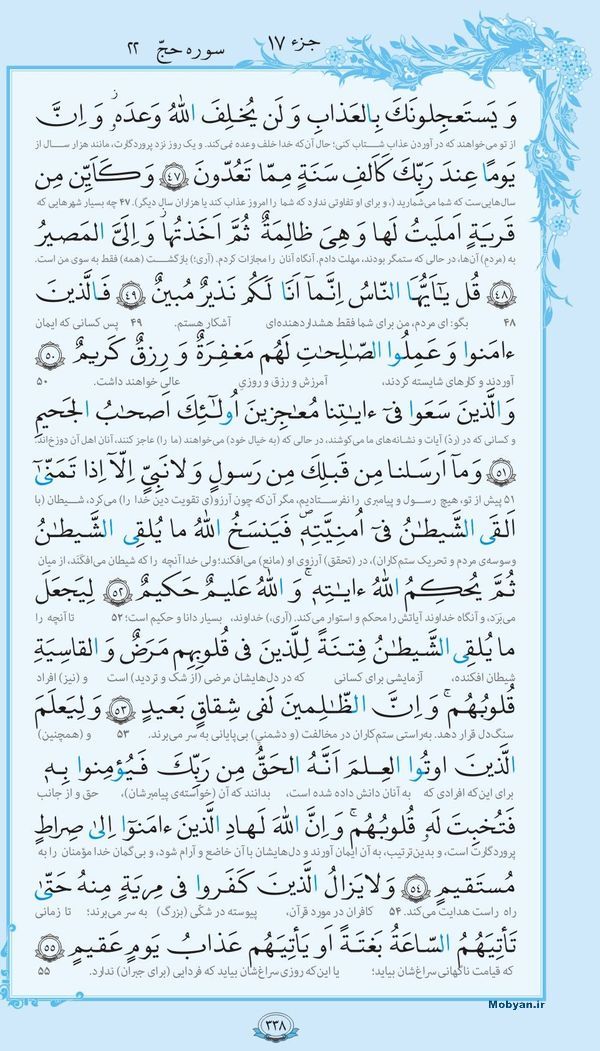 جزء ۱۷
سوره حجّ ۲۲
وَ يَستَعجِلونَكَ بِالعَذابِ وَ لَن يُخلِفَ اللهُ وَعدَهُ وَ اِنَّ
از تو می‌خواهند که در آوردن عذاب شتاب کنی؛ حال‌آن‌که خدا خلف وعده نمی‌کند. و یک روز نزد پروردگارت، مانند هزار سال از
يَومًا عِندَ رَبِّكَ كَاَلفِ سَنَةٍ مِمّا تَعُدّونَ ﴿۴۷﴾ وَ كَاَيِّن مِن
سال‌هایی‌ست که شما می‌شمارید (، و برای او تفاوتی ندارد که شما را امروز عذاب کند یا هزاران سال دیگر). ۴۷ چه بسیار شهرهایی که
قَريَةٍ اَملَيتُ لَها وَ هِىَ ظالِمَةٌ ثُمَّ اَخَذتُها وَ اِلَىَّ المَصيرُ
به (مردم) آن‌ها، در حالی که ستمگر بودند، مهلت دادم. آنگاه آنان را مجازات کردم. (آری؛) بازگشت (همه) فقط به سوی من است.
﴿۴۸﴾ قُل يٰاَيُّهَا النّاسُ اِنَّمآ اَنَا لَكُم نَذيرٌ مُبينٌ ﴿۴۹﴾ فَالَّذينَ
۴۸ بگو: ای مردم، من برای شما فقط هشداردهنده‌ای آشکار هستم. ۴۹ پس کسانی که ایمان
ءامَنوا وَ عَمِلُوا الصّالِحٰتِ لَهُم مَغفِرَةٌ وَ رِزقٌ كَريمٌ ﴿۵۰﴾
آوردند و کارهای شایسته کردند، آمرزش و رزق و روزیِ عالی خواهند داشت. ۵۰
وَ الَّذينَ سَعَوا فى ءاياتِنا مُعاجِزينَ اُولٰئِكَ اَصحابُ الجَحيمِ
و کسانی که در (ردّ) آیات و نشانه‌های ما می‌کوشند، در حالی که (به خیال خود) می‌خواهند (ما را) عاجز کنند، آنان اهل آن دوزخ‌اند.
﴿۵۱﴾ وَ مآ اَرسَلنا مِن قَبلِكَ مِن رَسولٍ وَ لا نَبِىٍّ اِلّآ اِذا تَمَنّىٰٓ
۵۱ پیش از تو، هیچ رسول و پیامبری را نفرستادیم، مگر آن‌که چون آرزو(ی تقویت دین خدا را) می‌کرد، شیطان (با
اَلقَى الشَّيطٰنُ فىٓ اُمنِيَّتِهِ فَيَنسَخُ اللهُ ما يُلقِى الشَّيطٰنُ
وسوسه‌ی مردم و تحریک ستم‌کاران)، در (تحقق) آرزوی او (مانع) می‌افکند؛ ولی خدا آنچه را که شیطان می‌افکَنَد، از میان
ثُمَّ يُحكِمُ اللهُ ءاياتِهِ وَ اللهُ عَليمٌ حَكيمٌ ﴿۵۲﴾ لِيَجعَلَ
می‌بَرَد، و آنگاه خداوند آیاتش را محکم و استوار می‌کند. (آری،) خداوند، بسیار دانا و حکیم است؛ ۵۲ تا آنچه را
ما يُلقِى الشَّيطٰنُ فِتنَةً لِلَّذينَ فى قُلوبِهِم مَرَضٌ وَ القاسِيَةِ
شیطان افکنده، آزمایشی برای کسانی که در دل‌هایشان مرضی (از شک و تردید) است و (نیز) افراد
قُلوبُهُم وَ اِنَّ الظّالِمينَ لَفى شِقاقٍ بَعيدٍ ﴿۵۳﴾ وَ لِيَعلَمَ
سنگ‌دل قرار دهد. به‌راستی ستم‌کاران در مخالفت (و دشمنیِ) بی‌پایانی به سر می‌برند. ۵۳ و (همچنین)
الَّذينَ اوتُوا العِلمَ اَنَّهُ الحَقُّ مِن رَبِّكَ فَيُؤمِنوا بِهِ
برای این‌که افرادی که به آنان دانش داده شده است، بدانند که آن (خواسته‌ی پیامبرشان)، حق و از جانب
فَتُخبِتَ لَهُ قُلوبُهُم وَ اِنَّ اللهَ لَهادِ الَّذينَ ءامَنوٓا اِلىٰ صِراطٍ
پروردگارت است، و بدین‌ترتیب، به آن ایمان آورند و دل‌هایشان با آن خاضع و آرام شود، و بی‌گمان خدا مؤمنان را به
مُستَقيمٍ ﴿۵۴﴾ وَ لا يَزالُ الَّذينَ كَفَروا فى مِريَةٍ مِنهُ حَتّىٰ
راه راست هدایت می‌کند. ۵۴ کافران در مورد قرآن، پیوسته در شکّی (بزرگ) به سر می‌برند؛ تا زمانی
تَأتِيَهُمُ السّاعَةُ بَغتَةً اَو يَأتِيَهُم عَذابُ يَومٍ عَقيمٍ ﴿۵۵﴾
که قیامت ناگهانی سراغ‌شان بیاید؛ یا این‌که روزی سراغ‌شان بیاید که فردایی (برای جبران) ندارد. ۵۵
۳۳۸
Mobyan.ir